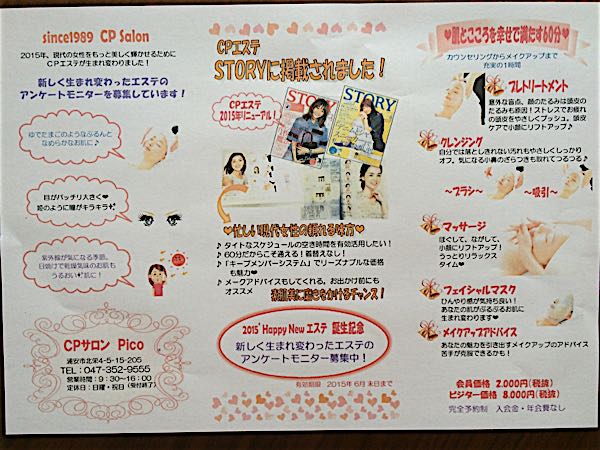 since1989 CP Salon
2015年、現代の女性をもっと美しく輝かせるために
CPエステが生まれ変わりました!
新しく生まれ変わったエステの
アンケートモニターを募集しています!
ゆでたまごのようなぷるんと
なめらかなお肌に♪
目がパッチリ大きく♥
姫のように瞳がキラキラ
紫外線が気になる季節。
日焼けで乾燥気味のお肌も
うるおい
CPサロン Pico
浦安市北栄4-5-15-205
TEL:047-352-9555
営業時間:9:30~16:00
定休日:日曜・祝日(受付終了)
CPエステ
STORYに掲載されました!
CPエステ
2015年リニューアル!
STORY
STORY
♥忙しい現代女性の頼れる味方♥
♪タイトなスケジュールの空き時間を有効活用したい!
♪60分だからこそ通える!着替えなし!
♪「キープメンバーシステム」でリーズナブルな価格
も魅力♥
♪メークアドバイスもしてくれる。お出かけ前にも
オススメ
素肌美に磨きをかけるチャンス!
2015' Happy New エステ 誕生記念
新しく生まれ変わったエステの
アンケートモニター募集中!
有効期限 2015年6月末日まで
♥肌とこころを幸せで満たす60分♥
カウンセリングからメイクアップまで
充実の1時間
プレトリートメント
意外な盲点、顔のたるみは頭皮の
たるみも原因!ストレスでお疲れ
の頭皮をやさしくプッシュ。頭皮
ケアで小顔にリフトアップ♪
クレンジング
自分では落としきれない汚れもやさしくしっかり
オフ。気になる小鼻のざらつきも取れてつるつる♪
~ブラシ~
~吸引~
マッサージ
ほぐして、ながして、
小顔にリフトアップ!
うっとりリラックス
タイム♥
フェイシャルマスク
ひんやり感が気持ち良い!
あなたの肌がぷるぷるお肌に
生まれ変わります♥
メイクアップアドバイス
あなたの魅力を引き出すメイクアップのアドバイス
苦手が克服できるかも!
会員価格 2,000円(税抜)
ビジター価格 8,000円(税抜)
完全予約制 入会金・年会費なし